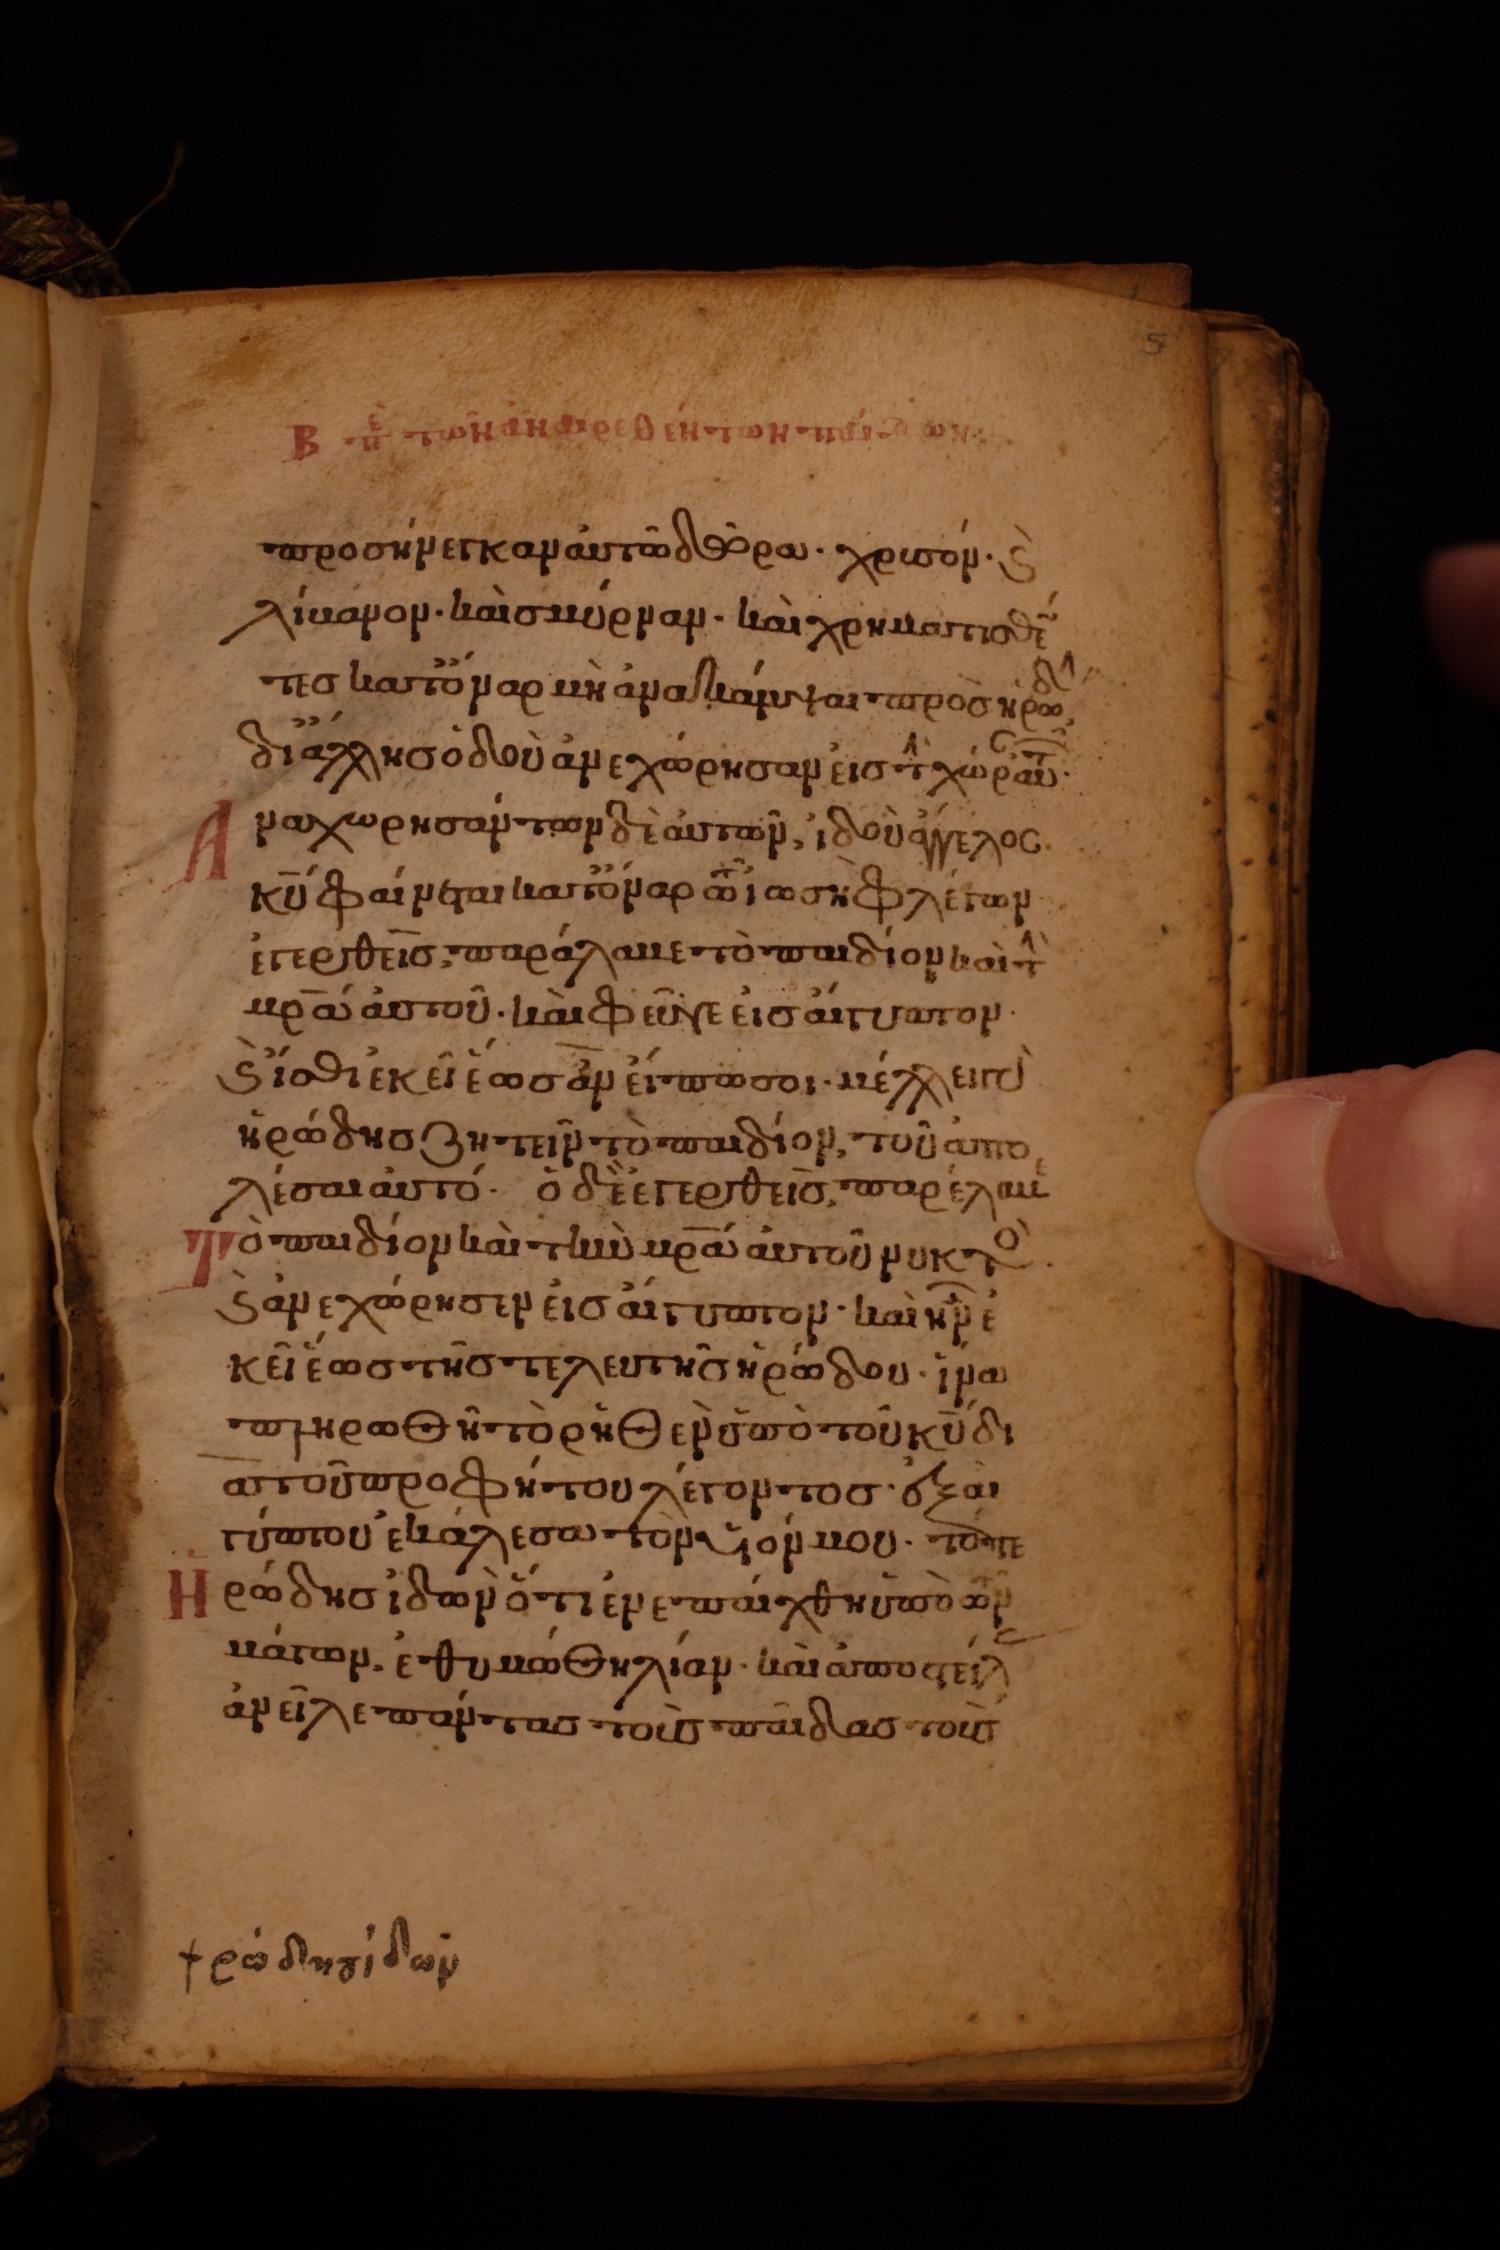 5
Β περὶ τῶν ἀναιρεθέντων
προσήνεγκαν αὐτῶ δῶρα· χρυσόν· ϗ
λίβανον· καὶ σμύρναν· καὶ χρηματισθέν
τες κατ ὄναρ μὴ ἀνακάμψαι πρὸς ἡρώδ
δι ἄλλης ὁδοῦ ἀνεχώρησαν εἰς τ χώραν αὐτ·
Ἀναχωρησάντων δὲ αὐτῶν, ἰδοὺ ἄγγελος
κυ φαίνεται κατ ὄναρ τῶ ἰωσὴφ λέγων
ἐγερθεὶς, παράλαβε τὸ παιδίον καὶ τ
μρα αὐτοῦ· καὶ φεῦγε εἰς αἴγυπτον·
ϗ ἴσθι ἐκεῖ ἕως ἂν εἴπω σοι· μέλλει γ
ἡρώδης ζητεῖν τὸ παιδίον, τοῦ ἀπο
λέσαι αὐτό· ὁ δὲ ἐγερθεὶς, παρέλαβε
Τὸ παιδίον καὶ τὴν μρα αὐτοῦ νυκτὸ·
ϗ ἀνεχώρησεν εἰς αἴγυπτον· καὶ ἦν ἐ
κεῖ ἕως τῆς τελευτῆς ἡρώδου· ἵνα
πληρωθῆ τὸ ῥηθὲν ὑπὸ τοῦ κυ δι
α τοῦ προφήτου λέγοντος· ἐξ αἰ
γύπτου ἐκάλεσα τὸν υἱόν μου· τότε
Ἡρώδης ἰδὼν ὅτι ἐνεπαίχθη ὑπὸ τῶν
μάγων, ἐθυμώθη λίαν· καὶ ἀποστείλας
ἀνεῖλε πάντας τοὺς παῖδας τοὺς
† ρώδης ἰδὼν